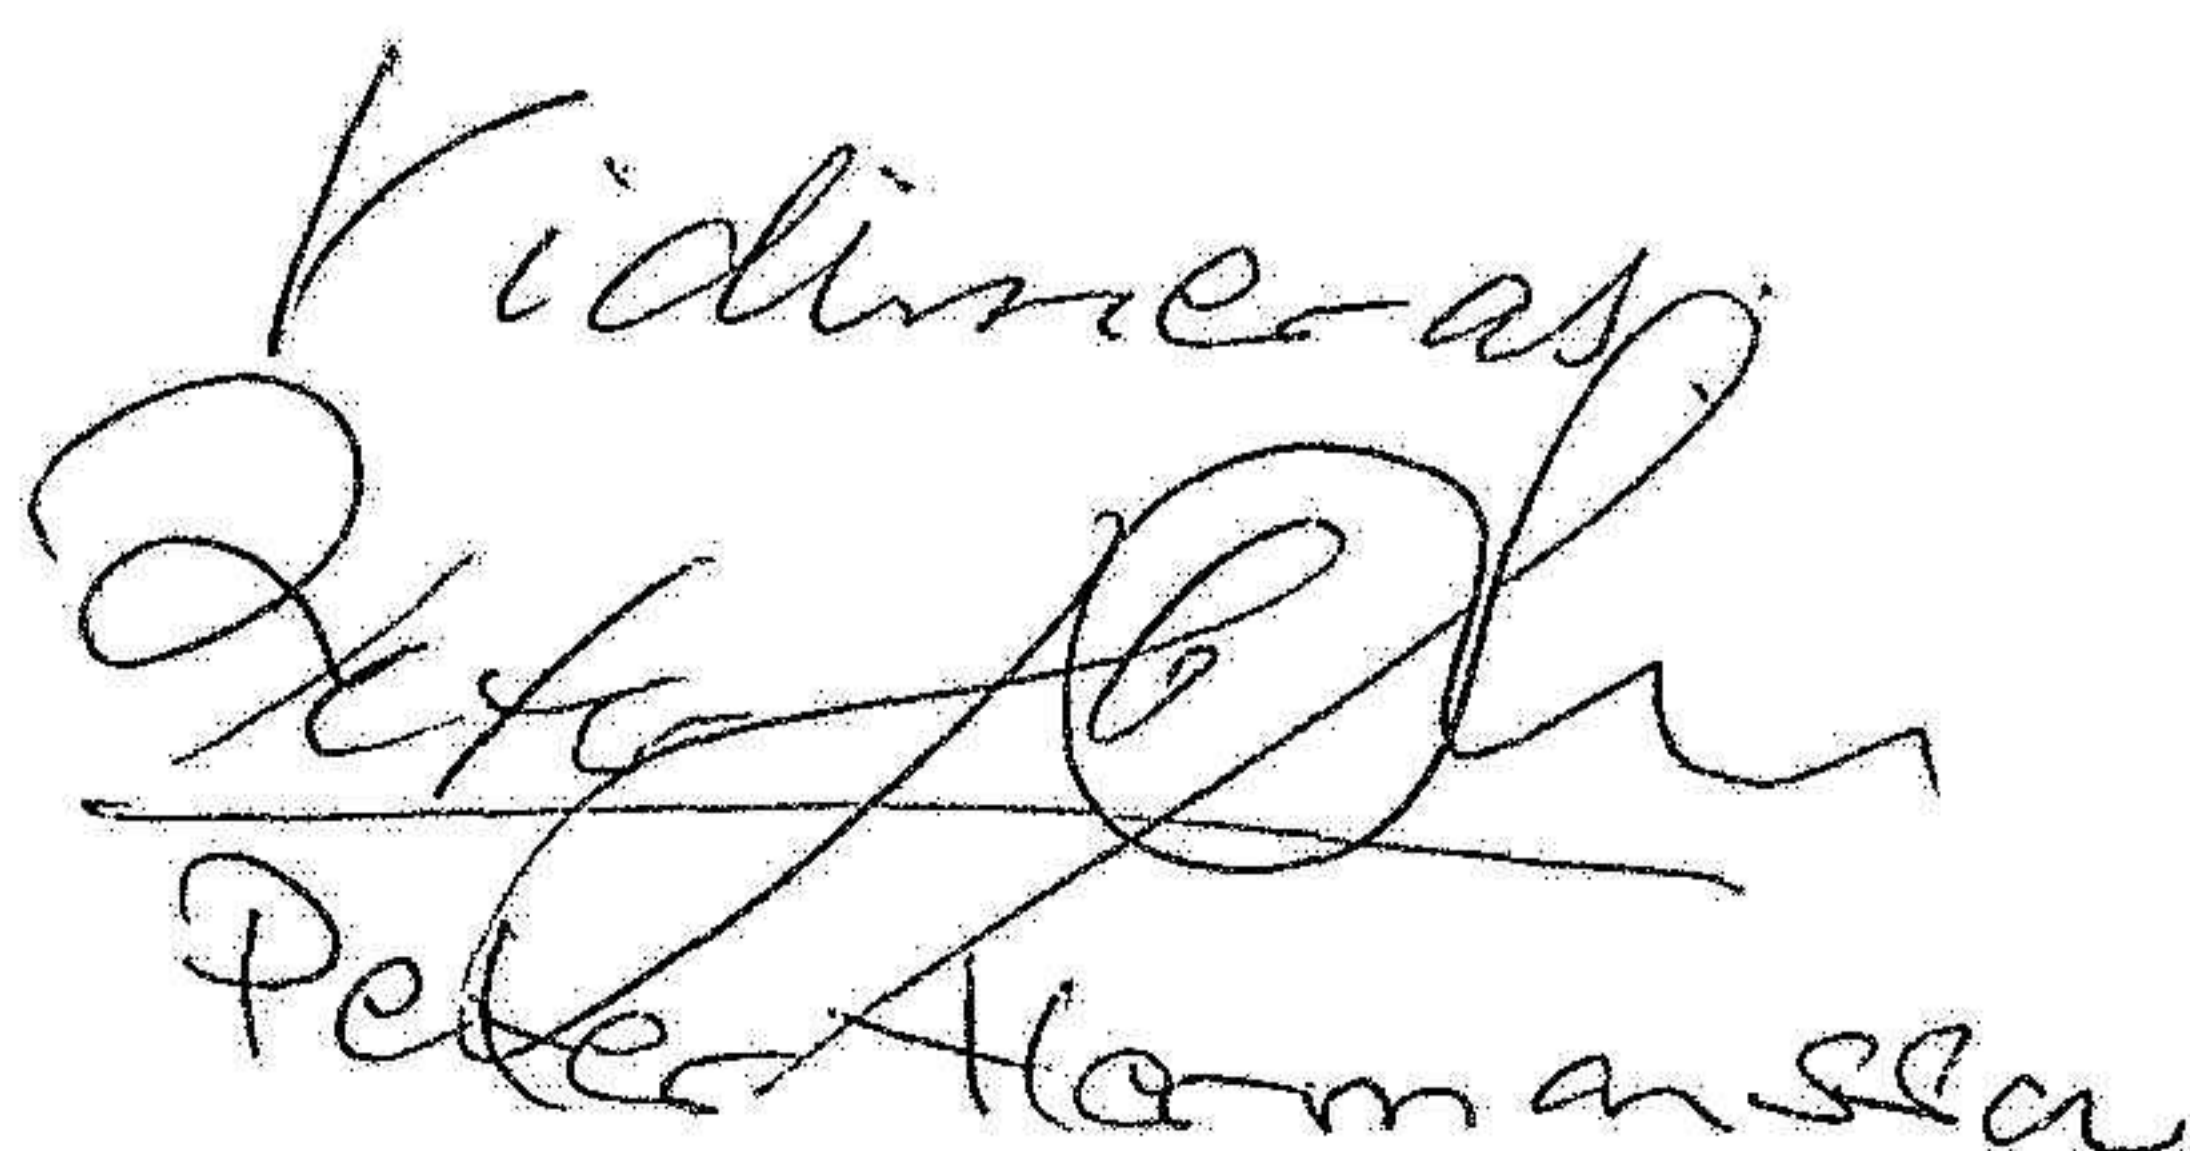 Vidimeras
Peter Hermansson